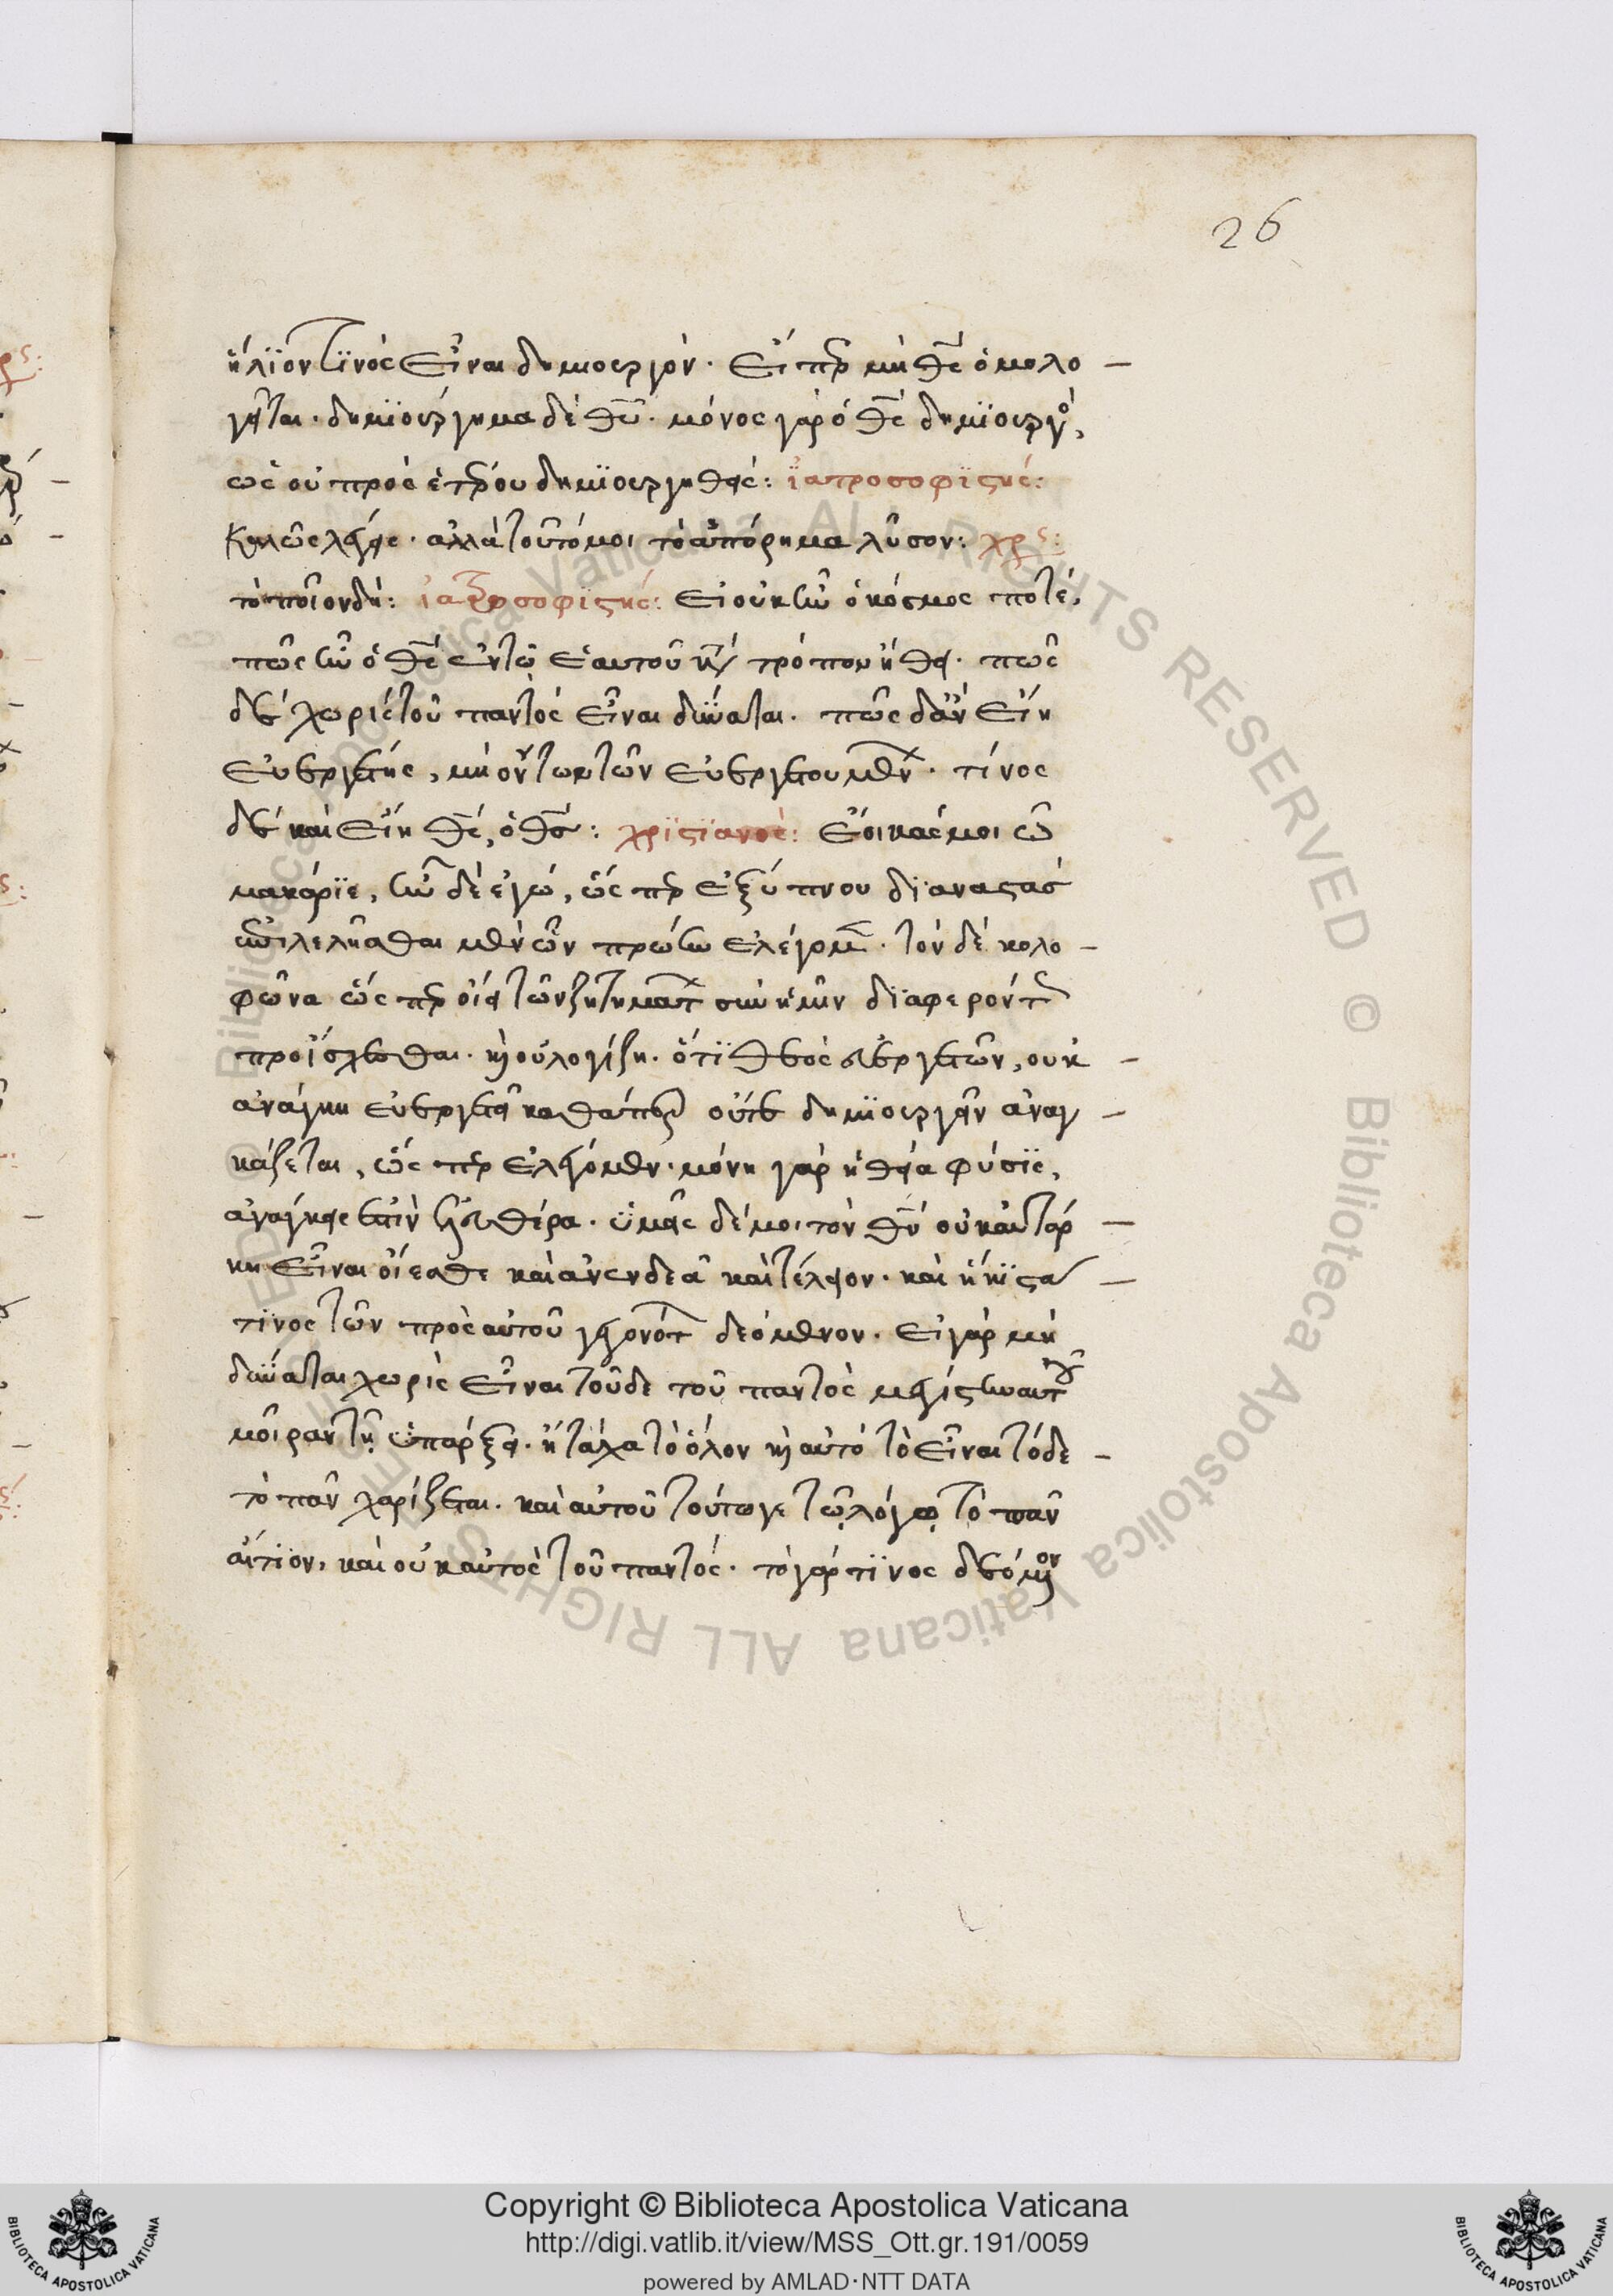 26
ἥλϊον τϊνὸς εἶναι δημιουργόν. εἴπερ μὴ θς ὁμολο-
γεῖται. δημϊούργημα δὲ θυ. μόνος γὰρ ὁ θς δημϊουργὸς,
ὡς οὐ πρὸς ἑτέρου δημϊουργηθείς: ἰατροσοφϊστής:
καλῶς λέγεις. ἀλλὰ τοῦτό μοι τὸ ἀπόρημα λῦσον: χρς:
τὸ ποῖον δή: ἰατροσοφιστής: εἰ οὐκ ἦν ὁ κόσμος ποτέ,
πῶς ἦν ὁ θς ἐν τῶ ἑαυτοῦ κατὰ τρόπον ἤθει. πῶς
δέ χωρὶς τοῦ παντὸς εἶναι δύναται. πῶς δ' ἂν εἴη
εὐεργέτης, μὴ ὄντων τῶν εὐεργετουμένων. τίνος
δέ καὶ εἴη θς, ὁ θς: χρϊστϊανός: ἔοικάς μοι ὦ
μακάρϊε, ἦν δὲ ἐγώ, ὥσπερ ἐξ ὕπνου δϊαναστὰς
ἐπιλελῆσθαι μὲν ὧν πρώην ἐλέγομεν. τὸν δέ κολο-
φῶνα ὥσπερ οἴει τῶν ζητημάτων σὺν ἡμῖν δϊαφερόντως
προΐσχεσθαι. καὶ οὐ λογίζη. ὅτϊ θεὸς εὐεργετῶν, οὐκ
ἀνάγκη εὐεργετεῖ καθάπερ οὔτε δημϊουργεῖν ἀναγ-
κάζεται, ὥσπερ ἐλέγομεν. μόνη γὰρ ἡ θεία φύσϊς,
ἀνάγκης ἐστὶν ἐλευθέρα. ὑμεῖς δέ μοι τὸν θν οὐκ αὐτάρ-
κη εἶναι οἴεσθε καὶ ἀνενδεᾶ καὶ τέλειον. καὶ ἥκϊστα
τϊνος τῶν πρὸς αὐτοῦ γεγονότων δεόμενον. εἰ γὰρ μὴ
δύναται χωρὶς εἶναι τοῦδε τοῦ παντὸς μεγίστην αὐτῶ
μοῖραν τῇ ὑπάρξει. ἢ τάχα τὸ ὅλον καὶ αὐτὸ τὸ εἶναι τόδε
τὸ πᾶν χαρίζεται. καὶ αὐτοῦ τούτω γε τῷ λόγῳ τὸ πᾶν
αἴτϊον, καὶ οὐκ αὐτὸς τοῦ παντός. τὸ γάρ τϊνος δεόμενον
Copyright © Biblioteca Apostolica Vaticana
http://digi.vatlib.it/view/MSS_Ott.gr.191/0059
powered by AMLAD·NTT DATA